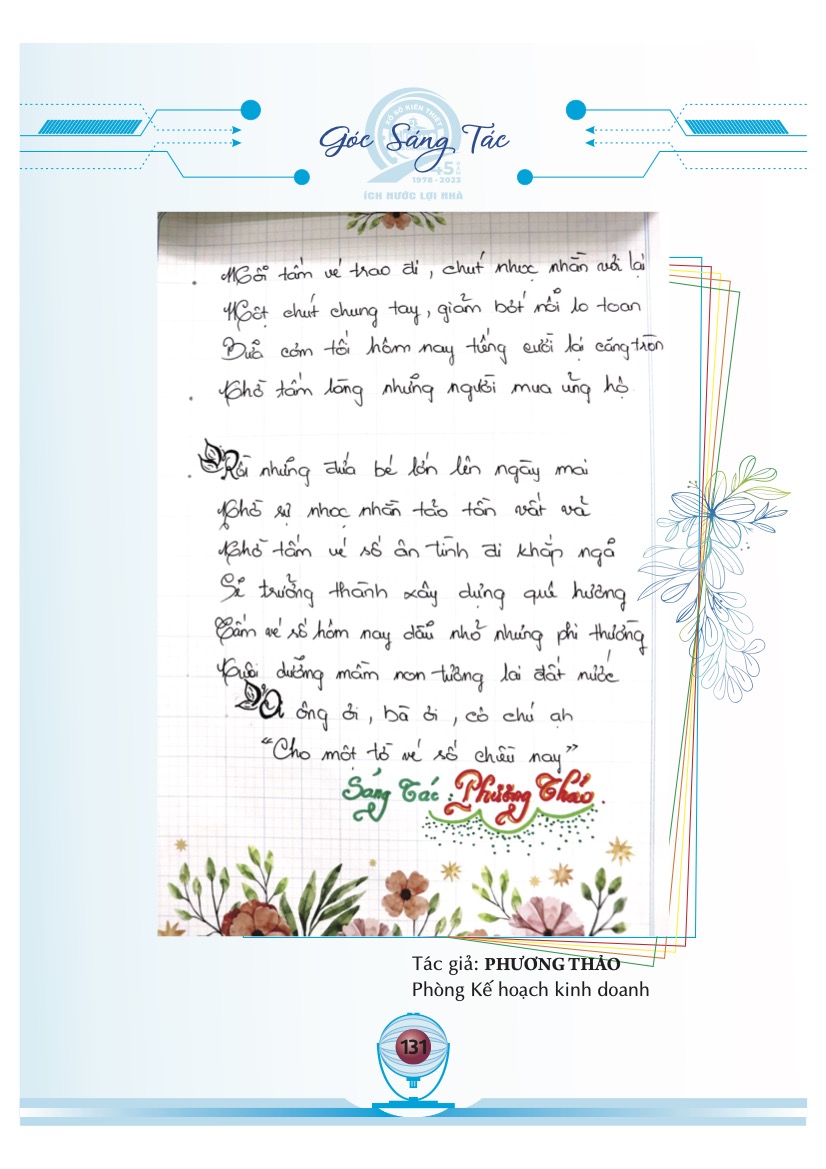 XỔ SỐ KIẾN THIẾT
Góc Sáng Tác
45 NĂM
1978 - 2023
ÍCH NƯỚC LỢI NHÀ
Mỗi tấm vé trao đi, chút nhọc nhằn vơi lại
Một chút chung tay, giảm bớt nỗi lo toan
Bữa cơm tối hôm nay tiếng cười lại căng tròn
Nhờ tấm lòng những người mua ủng hộ
Rồi những đứa bé lớn lên ngày mai
Nhờ sự nhọc nhằn tảo tần vất vả
Nhờ tấm vé số ân tình đi khắp ngả
Sẽ trưởng thành xây dựng quê hương
Tấm vé số hôm nay dẫu nhỏ nhưng phi thường
Nuôi dưỡng mầm non tương lai đất nước
Ơi ông ơi, bà ơi, cô chú ạh
“Cho một tờ vé số chiều nay”
Sáng Tác: Phương Thảo.
Tác giả: PHƯƠNG THẢO
Phòng Kế hoạch kinh doanh
131